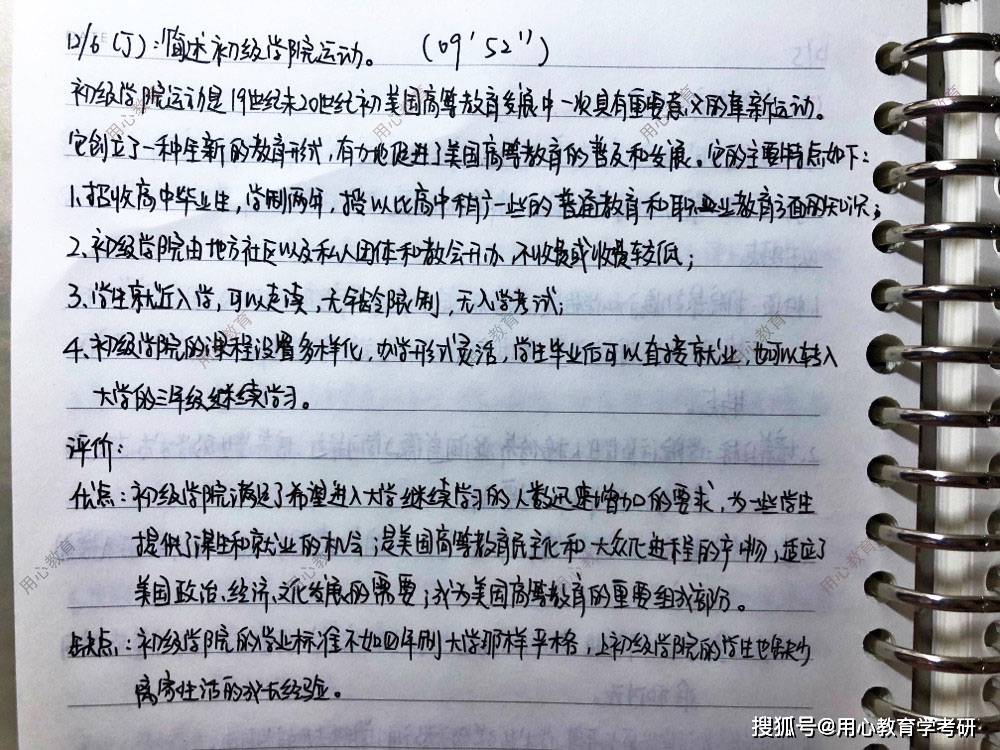 12/6 (J):简述初级学院运动。 (09'52'')
初级学院运动是19世纪末20世纪初美国高等教育发展中一次具有重要意义的革新运动。
它创立了一种全新的教育形式,有力地促进了美国高等教育的普及和发展。它的主要特点如下:
1.招收高中毕业生,学制两年,授以比高中稍广一些的普通教育和职业教育方面的知识;
2.初级学院由地方社区以及私人团体和教会开办,不收费或收费较低;
3.学生就近入学,可以走读,无年龄限制,无入学考试;
4.初级学院的课程设置多样化,办学形式灵活,学生毕业后可以直接就业,也可以转入
大学的三年级继续学习。
评价:
优点:初级学院满足了希望进入大学继续学习的人数迅速增加的要求,为一些学生
提供了谋生和就业的机会;是美国高等教育民主化和大众化进程的产物,适应了
美国政治、经济、文化发展的需要;成为美国高等教育的重要组成部分。
缺点:初级学院的学业标准不如四年制大学那样严格,上初级学院的学生也缺少
离家生活的成长经验。
用心教育
用心教育
用心教育
用心教育
用心教育
用心教育
用心教育
用心教育
用心教育
搜狐号@用心教育学考研